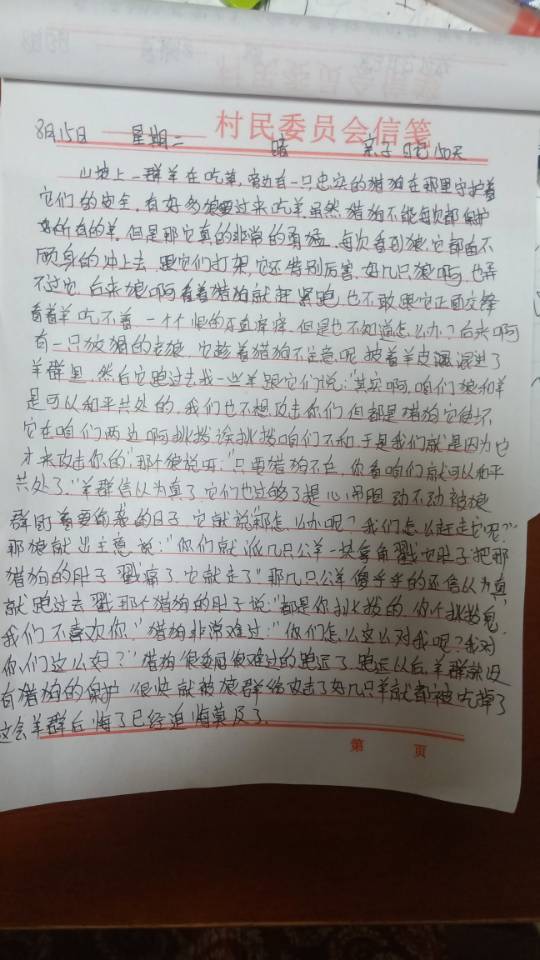 村民委员会信笺
8月15日 星期二 晴 亲子日记150天
山坡上一群羊在吃草,旁边有一只忠实的猎狗在那里守护着
它们的安全,有好多狼要过来吃羊虽然猎狗不能每次都保护
好所有的羊,但是那它真的非常的勇猛,每次看到狼,它都奋不
顾身的冲上去,跟它们打架,它还特别厉害,好几只狼啊,也弄
不过它,后来狼啊看着猎狗就赶紧跑,也不敢跟它正面交锋
看着羊吃不着一个个恨的牙直痒痒,但是也不知道怎么办?后来啊
有一只狡猾的老狼,它趁着猎狗不注意呢,披着羊皮混进了
羊群里,然后它跑过去找一些羊跟它们说:"其实啊,咱们狼和羊
是可以和平共处的,我们也不想攻击你们,但都是猎狗它使坏
它在咱们两边啊挑拨挑拨咱们不和,于是我们就是因为它
才来攻击你的"那个狼说呀:"只要猎狗不在,你看咱们就可以和平
共处了."羊群信以为真了,它们也过够了提心吊胆,动不动被狼
群的日子,它就说"那怎么办呢?我们怎么赶走它呢?"
那狼就出主意说:"你们就派几只公羊一块拿角戳它肚子,把那
猎狗的肚子戳痛了,它就走了"那几只公羊傻乎乎的还信以为真
就跑过去戳那个猎狗的肚子说:"都是你挑拨的,你个挑拨鬼,
我们不喜欢你"猎狗非常难过:"你们怎么这么对我呢?我对
你们这么好?"猎狗很委屈很难过的跑远了,跑远以后,羊群就没
有猎狗的保护,很快就被狼群给攻击了好几只羊就都被吃掉了
这会羊群后悔了已经追悔莫及了.
第 页